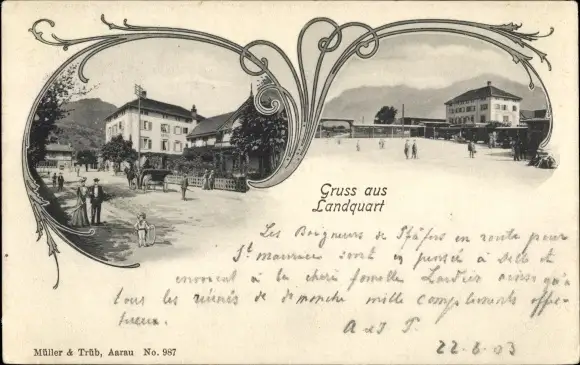 Gruss aus
Landquart
Les Baigneurs de Pfäfers en route pour
St Maurice sont en pensée à Selle et
envoient à la chère famille ainsi qu'à
tous les réunis de dimanche mille compliments affec-
tueux.
A et F.
22-6-03
Müller & Trüb, Aarau No. 987